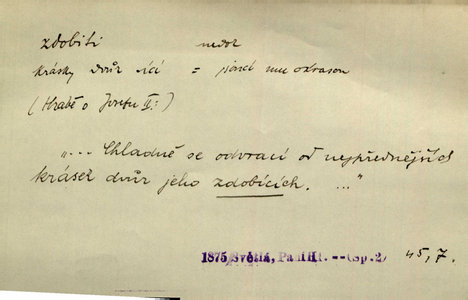 zdobiti nedok
krásky dvůr zdící = jsoucí mu okrasou
(Hrabě o Josefu II:)
„... Chladně se odvrací od nejpřednějších
krásek dvůr jeho zdobících. ..."
1875 Světlá, Paní Hl. -- (Sp.2) 45,7.